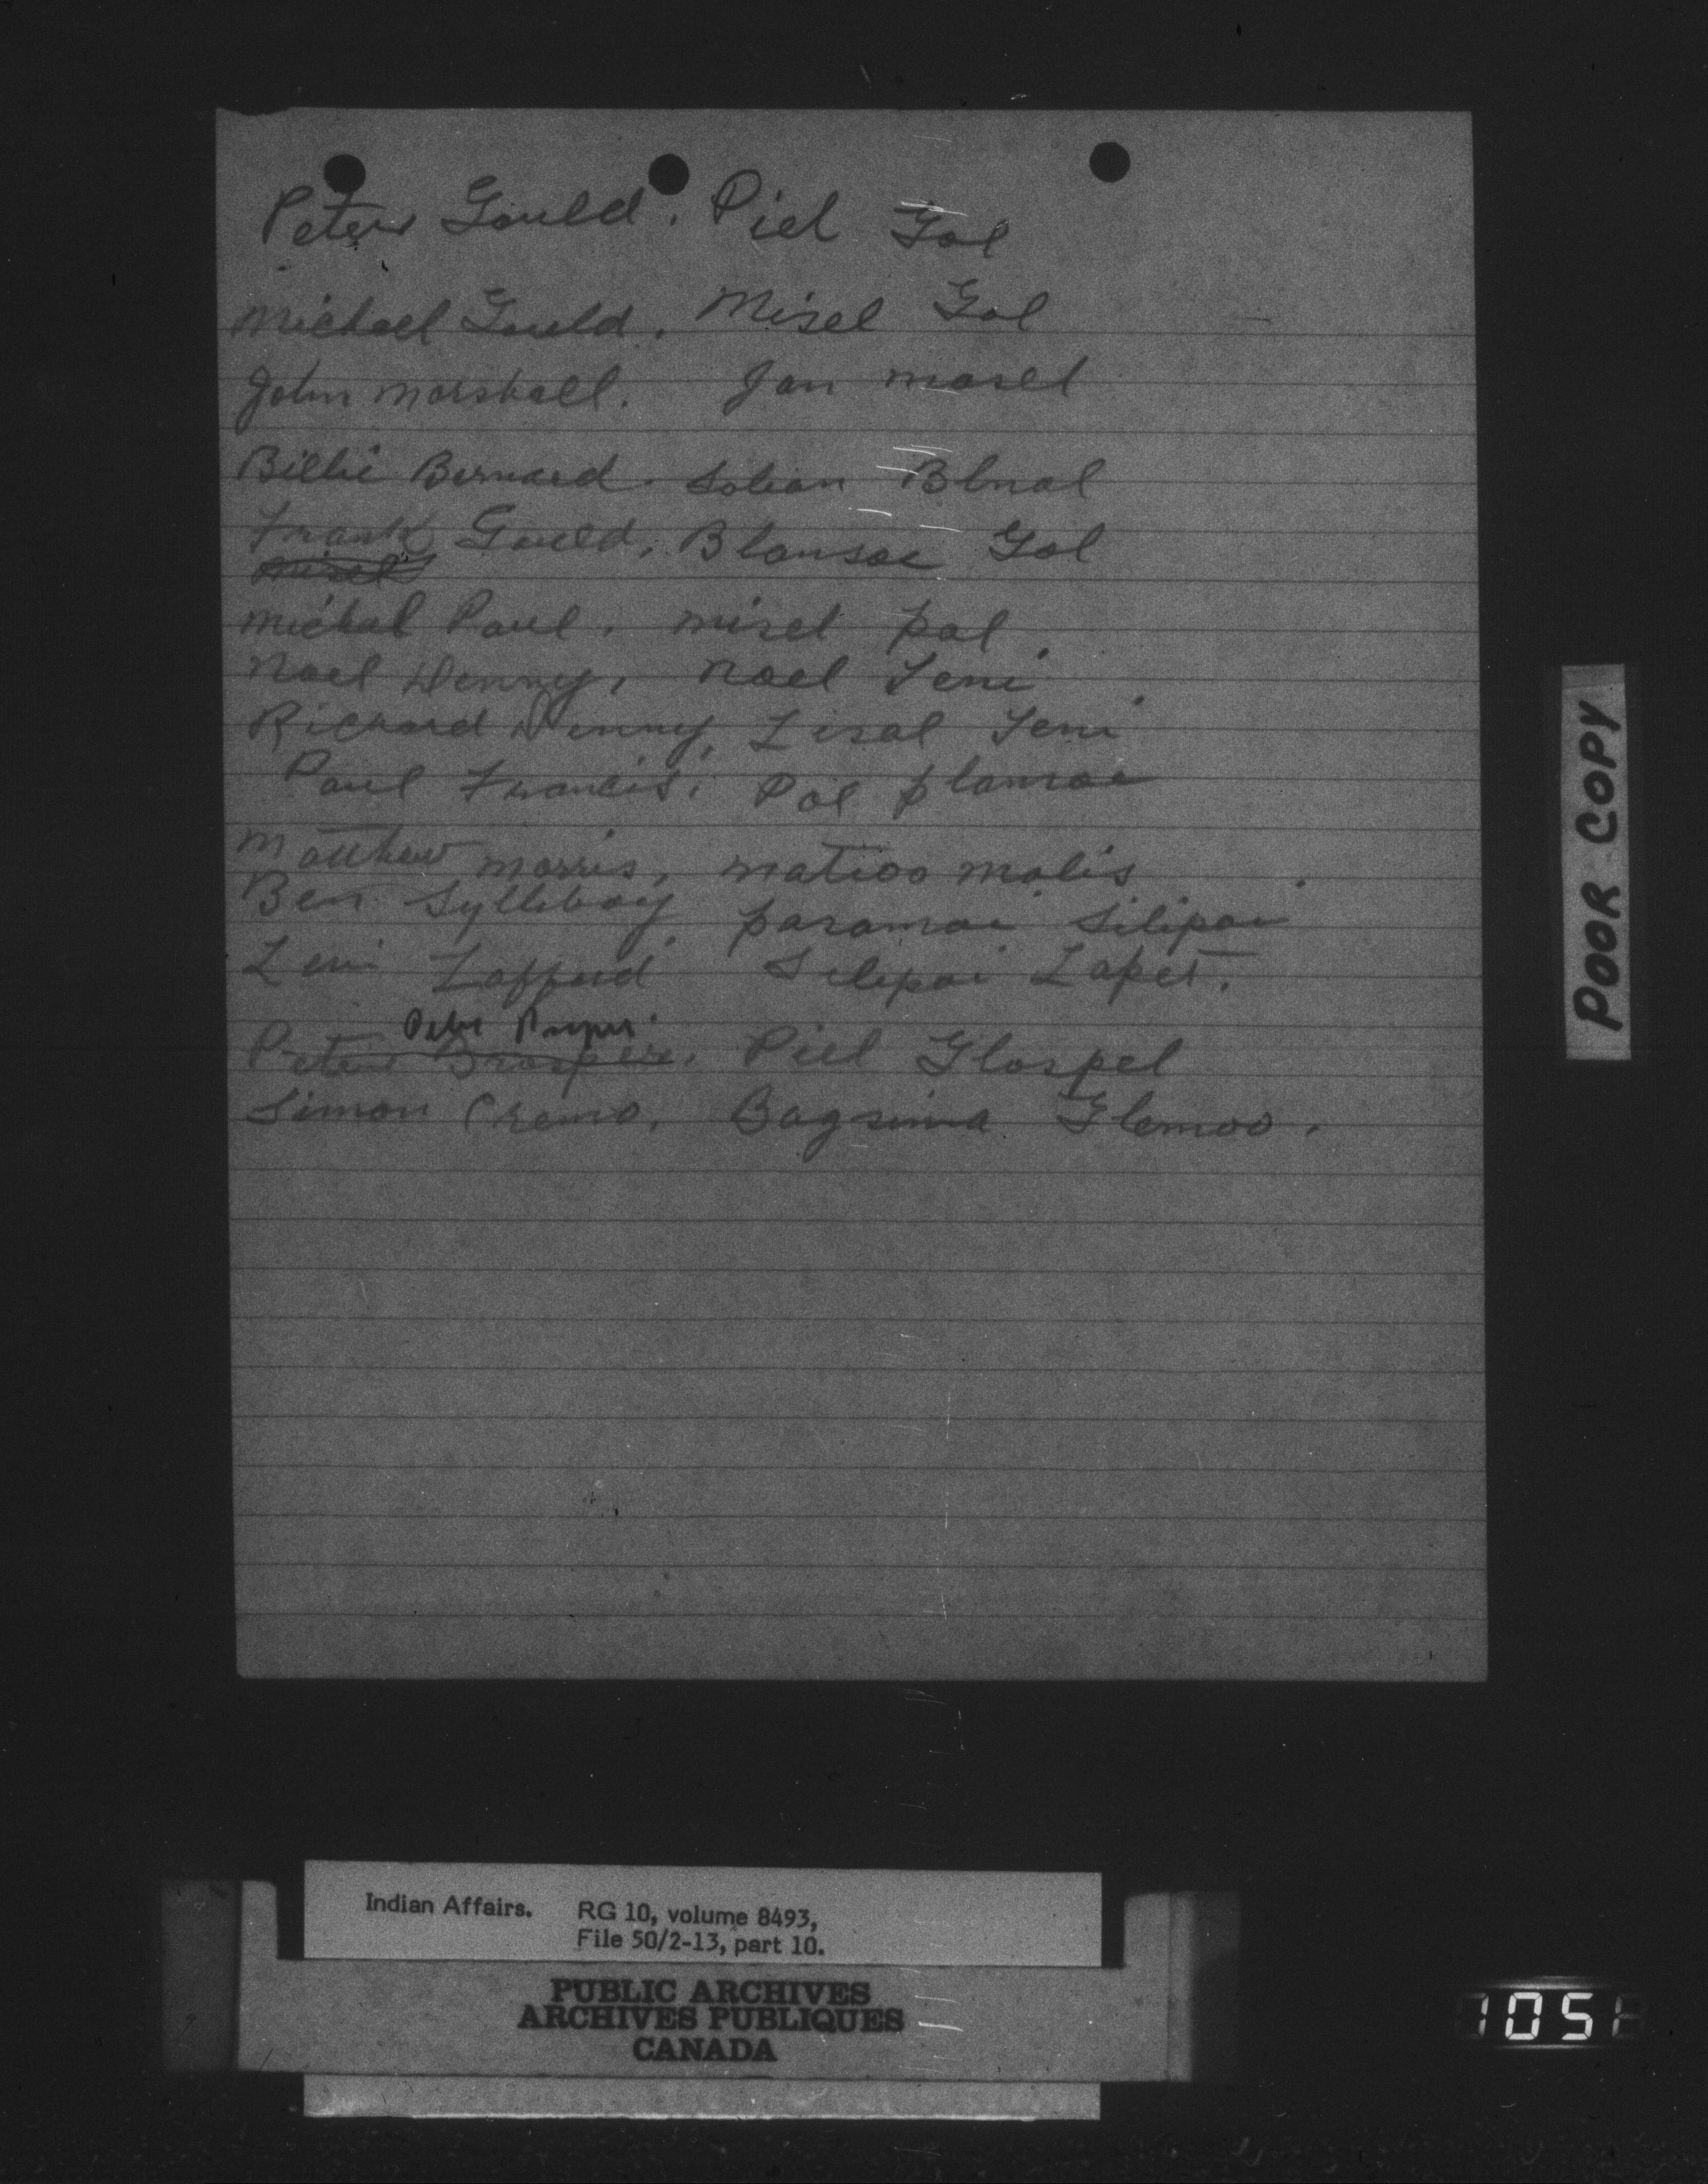 Peter Gould. Piel Gol
Michael Gould. Misel Gol
John Marshall. Jan masel
Billie Bernard. Solian Blnal
Frank Gould, Blansoe Gol
misel
Michal Paul. misel pal
Noel Denny, Noel Teni
Richard Denny, Lisal Teni
Paul Francis, Pol plansoe
Matthew Morris, matioo molis
Ben Sylliboy pasamai Silipai
Levi Lafford Silipai Lapet.
Peter
Peter Prosper, Piel Glospel
Simon Cremo, Bagsima Glemoo.
POOR COPY
Indian Affairs. RG 10, volume 8493,
File 50/2-13, part 10.
PUBLIC ARCHIVES
ARCHIVES PUBLIQUES
CANADA